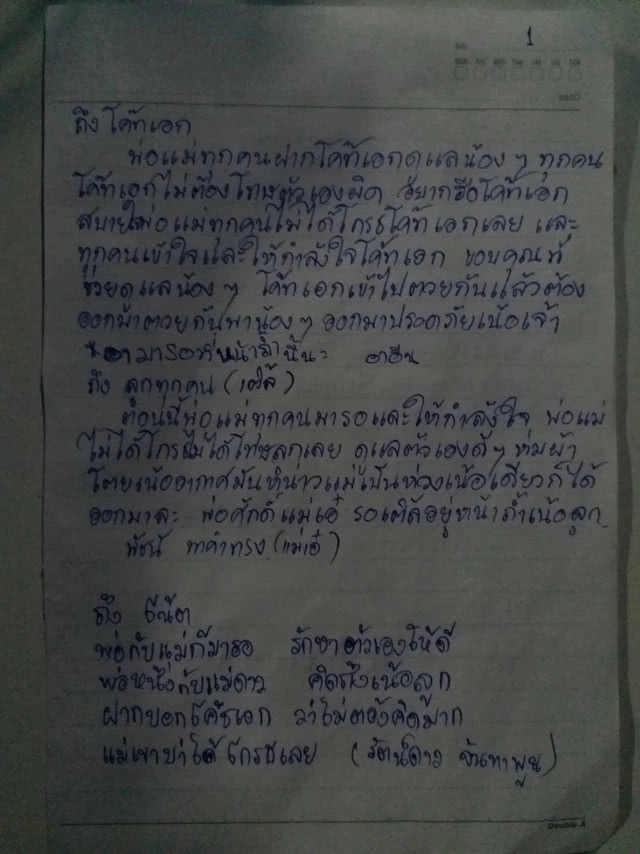 1
ถึง โค้ทเอก
พ่อแม่ทุกคนฝากโค้ทเอกดูแลน้อง ๆ ทุกคน
โค้ทเอกไม่ต้องโทษตัวเองผิด อยากฮือโค้ทเอก
สบายใจพ่อแม่ทุกคนไม่ได้โกรธโค้ทเอกเลย และ
ทุกคนเข้าใจและให้กำลังใจโค้ทเอก ขอบคุณที่
ช่วยดูแลน้อง ๆ โค้ทเอกเข้าไปตวยกันแล้วต้อง
ออกมาตวยกันพาน้อง ๆ ออกมาปรอดภัยเน้อเจ้า
อามารอที่หน้าถ้ำนี้นะ
ถึง ลูกทุกคน (เติ้ล)
ตอนนี้พ่อแม่ทุกคนมารอและให้กำลังใจ พ่อแม่
ไม่ได้โกรธไม่ได้โทษลูกเลย ดูแลตัวเองดี ๆ ห่มผ้า
โตยเน้ออากาศมันหนาวแม่เป็นห่วงเน้อเดียวก็ได้
ออกมาละ พ่อศักดิ์แม่เอ๋ รอเติ้ลอยู่หน้าถ้ำเน้อลูก
พัชนี ทาคำทรง (แม่เอ๋)
ถึง ธีน๊ต
พ่อกับแม่ก็มารอ รักษาตัวเองให้ดี
พ่อหนึ่งกับแม่ดาว คิดถึงเน้อลูก
ฝากบอกโค้ชเอก ว่าไม่ต้องคิดมาก
แม่เขาบ่าได้โกรธเลย (รัตน์ดาว จันทาพูน)
Double A